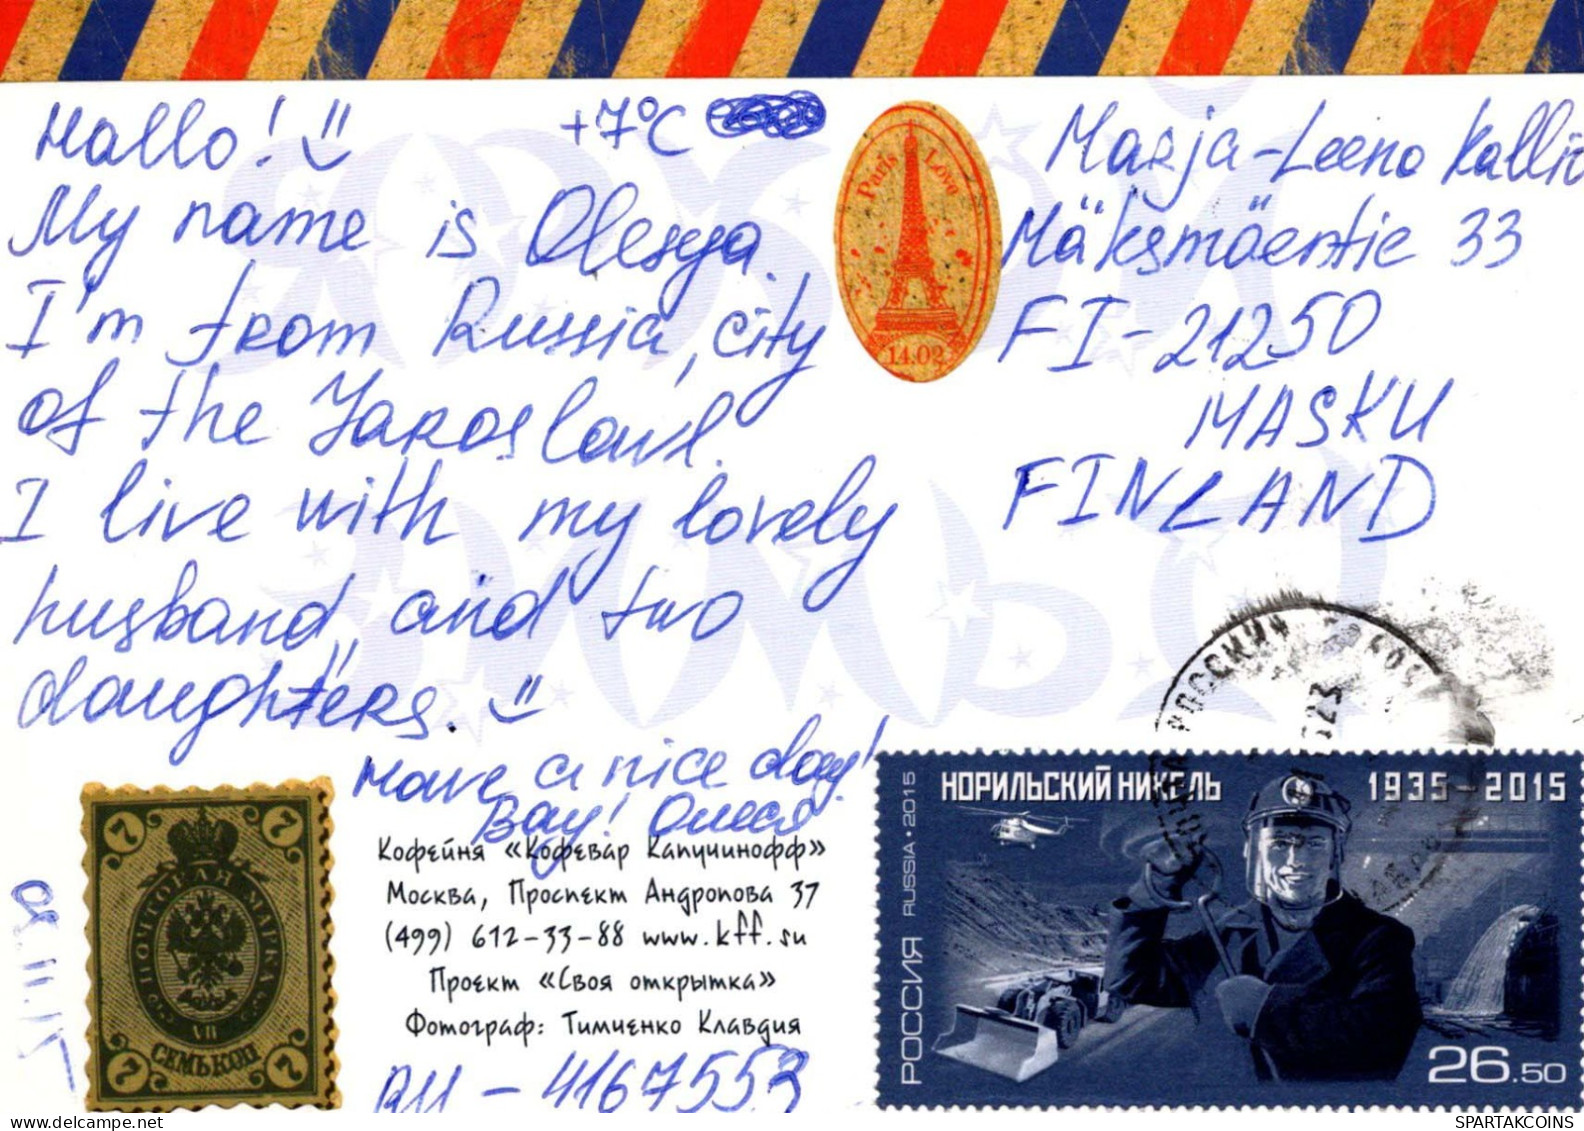 Hallo! +7°C
My name is Olesya.
I'm from Russia, city
of the Jaroslavl.
I live with my lovely
husband, and two
daughters.
Have a nice day!
Bay! Олеся
Paris Love
14.02
Marja-Leena Kallio
Mäksmäentie 33
FI-21250
MASKU
FINLAND
08.11.15
7 7
ПОЧТОВАЯ МАРКА
VII
СЕМЬ КОП
7 7
Кофейня «Кофевар Капучинофф»
Москва, Проспект Андропова 37
(499) 612-33-88 www.kff.su
Проект «Своя открытка»
Фотограф: Тимченко Клавдия
RU-4167553
НОРИЛЬСКИЙ НИКЕЛЬ 1935-2015
РОССИЯ RUSSIA • 2015
26.50
SPARTAKCOINS
delcampe.net